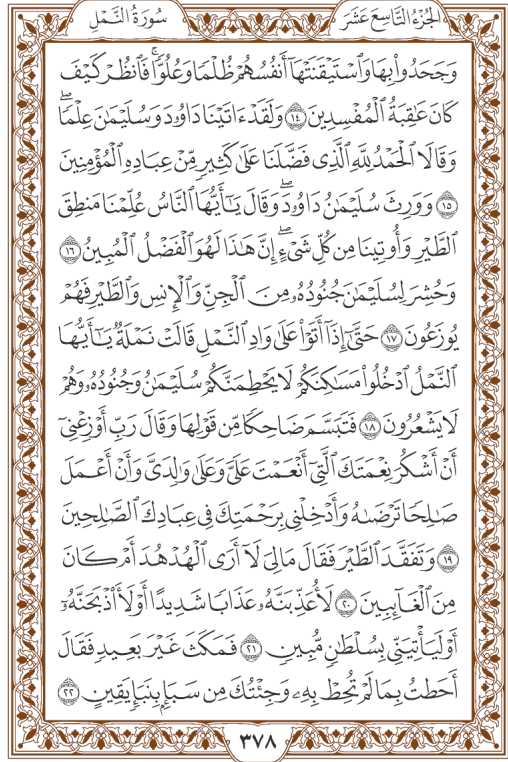 الجُزْءُ التَّاسِعَ عَشَرَ
سُورَةُ النَّمْلِ
وَجَحَدُواْ بِهَا وَٱسۡتَيۡقَنَتۡهَآ أَنفُسُهُمۡ ظُلۡمٗا وَعُلُوّٗاۚ فَٱنظُرۡ كَيۡفَ
كَانَ عَٰقِبَةُ ٱلۡمُفۡسِدِينَ ١٤ وَلَقَدۡ ءَاتَيۡنَا دَاوُۥدَ وَسُلَيۡمَٰنَ عِلۡمٗاۖ
وَقَالَا ٱلۡحَمۡدُ لِلَّهِ ٱلَّذِي فَضَّلَنَا عَلَىٰ كَثِيرٖ مِّنۡ عِبَادِهِ ٱلۡمُؤۡمِنِينَ
١٥ وَوَرِثَ سُلَيۡمَٰنُ دَاوُۥدَۖ وَقَالَ يَٰٓأَيُّهَا ٱلنَّاسُ عُلِّمۡنَا مَنطِقَ
ٱلطَّيۡرِ وَأُوتِينَا مِن كُلِّ شَيۡءٍۖ إِنَّ هَٰذَا لَهُوَ ٱلۡفَضۡلُ ٱلۡمُبِينُ ١٦
وَحُشِرَ لِسُلَيۡمَٰنَ جُنُودُهُۥ مِنَ ٱلۡجِنِّ وَٱلۡإِنسِ وَٱلطَّيۡرِ فَهُمۡ
يُوزَعُونَ ١٧ حَتَّىٰٓ إِذَآ أَتَوۡاْ عَلَىٰ وَادِ ٱلنَّمۡلِ قَالَتۡ نَمۡلَةٞ يَٰٓأَيُّهَا
ٱلنَّمۡلُ ٱدۡخُلُواْ مَسَٰكِنَكُمۡ لَا يَحۡطِمَنَّكُمۡ سُلَيۡمَٰنُ وَجُنُودُهُۥ وَهُمۡ
لَا يَشۡعُرُونَ ١٨ فَتَبَسَّمَ ضَاحِكٗا مِّن قَوۡلِهَا وَقَالَ رَبِّ أَوۡزِعۡنِيٓ
أَنۡ أَشۡكُرَ نِعۡمَتَكَ ٱلَّتِيٓ أَنۡعَمۡتَ عَلَيَّ وَعَلَىٰ وَٰلِدَيَّ وَأَنۡ أَعۡمَلَ
صَٰلِحٗا تَرۡضَىٰهُ وَأَدۡخِلۡنِي بِرَحۡمَتِكَ فِي عِبَادِكَ ٱلصَّٰلِحِينَ
١٩ وَتَفَقَّدَ ٱلطَّيۡرَ فَقَالَ مَالِيَ لَآ أَرَى ٱلۡهُدۡهُدَ أَمۡ كَانَ
مِنَ ٱلۡغَآئِبِينَ ٢٠ لَأُعَذِّبَنَّهُۥ عَذَابٗا شَدِيدًا أَوۡ لَأَاْذۡبَحَنَّهُۥٓ
أَوۡ لَيَأۡتِيَنِّي بِسُلۡطَٰنٖ مُّبِينٖ ٢١ فَمَكَثَ غَيۡرَ بَعِيدٖ فَقَالَ
أَحَطتُ بِمَا لَمۡ تُحِطۡ بِهِۦ وَجِئۡتُكَ مِن سَبَإِۭ بِنَبَإٖ يَقِينٍ ٢٢
٣٧٨